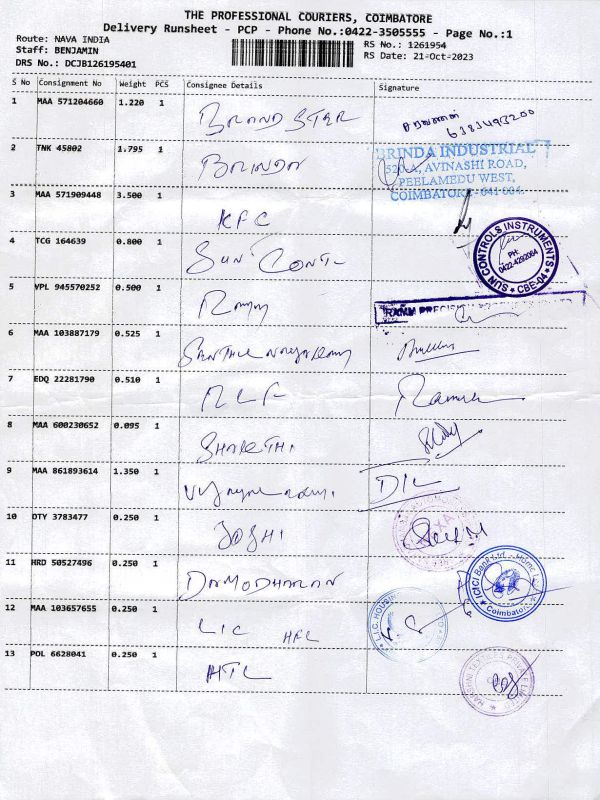 THE PROFESSIONAL COURIERS, COIMBATORE
Delivery Runsheet - PCP - Phone No.:0422-3505555 - Page No.:1
Route: NAVA INDIA
Staff: BENJAMIN
DRS No.: DCJB126195401
RS No.: 1261954
RS Date: 21-Oct-2023
S No Consignment No Weight PCS Consignee Details Signature
1 MAA 571204660 1.220 1 BRAND STAR சரவணன்
2 TNK 45802 1.795 1 BRINDA BRINDA INDUSTRIAL
520 A, AVINASHI ROAD,
PEELAMEDU WEST,
COIMBATORE - 641 004.
3 MAA 571909448 3.500 1 KFC
4 TCG 164639 0.800 1 SUN CONT SUN CONTROLS INSTRUMENTS * CBE-04 *
PH: 0422-4292064
5 VPL 945570252 0.500 1
6 MAA 103887179 0.525 1
7 EDQ 22281790 0.510 1
8 MAA 600230652 0.095 1 SHAKTHI
9 MAA 861893614 1.350 1 DIL
10 DTY 3783477 0.250 1 JOSHI
11 HRD 50527496 0.250 1 DAMODHARAN ICICI Bank Ltd. Home
Coimbatore
12 MAA 103657655 0.250 1 LIC HFL L.I.C. HOUSING
13 POL 6628041 0.250 1 HTL HARSHNI TEXTILES PRIVATE LIMITED